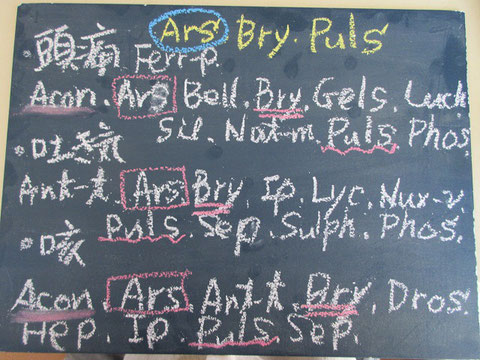 Ars Bry. Puls
・頭痛 Ferr-p.
Acon. Ars Bell. Bry. Gels. Lach
Sil. Nat-m. Puls Phos
・吐き気
Ant-t. Ars Bry. Ip. Lyc. Nux-v.
Puls. Sep. Sulph. Phos.
・咳
Acon Ars Ant-t Bry. Dros.
Hep. Ip. Puls Sep.